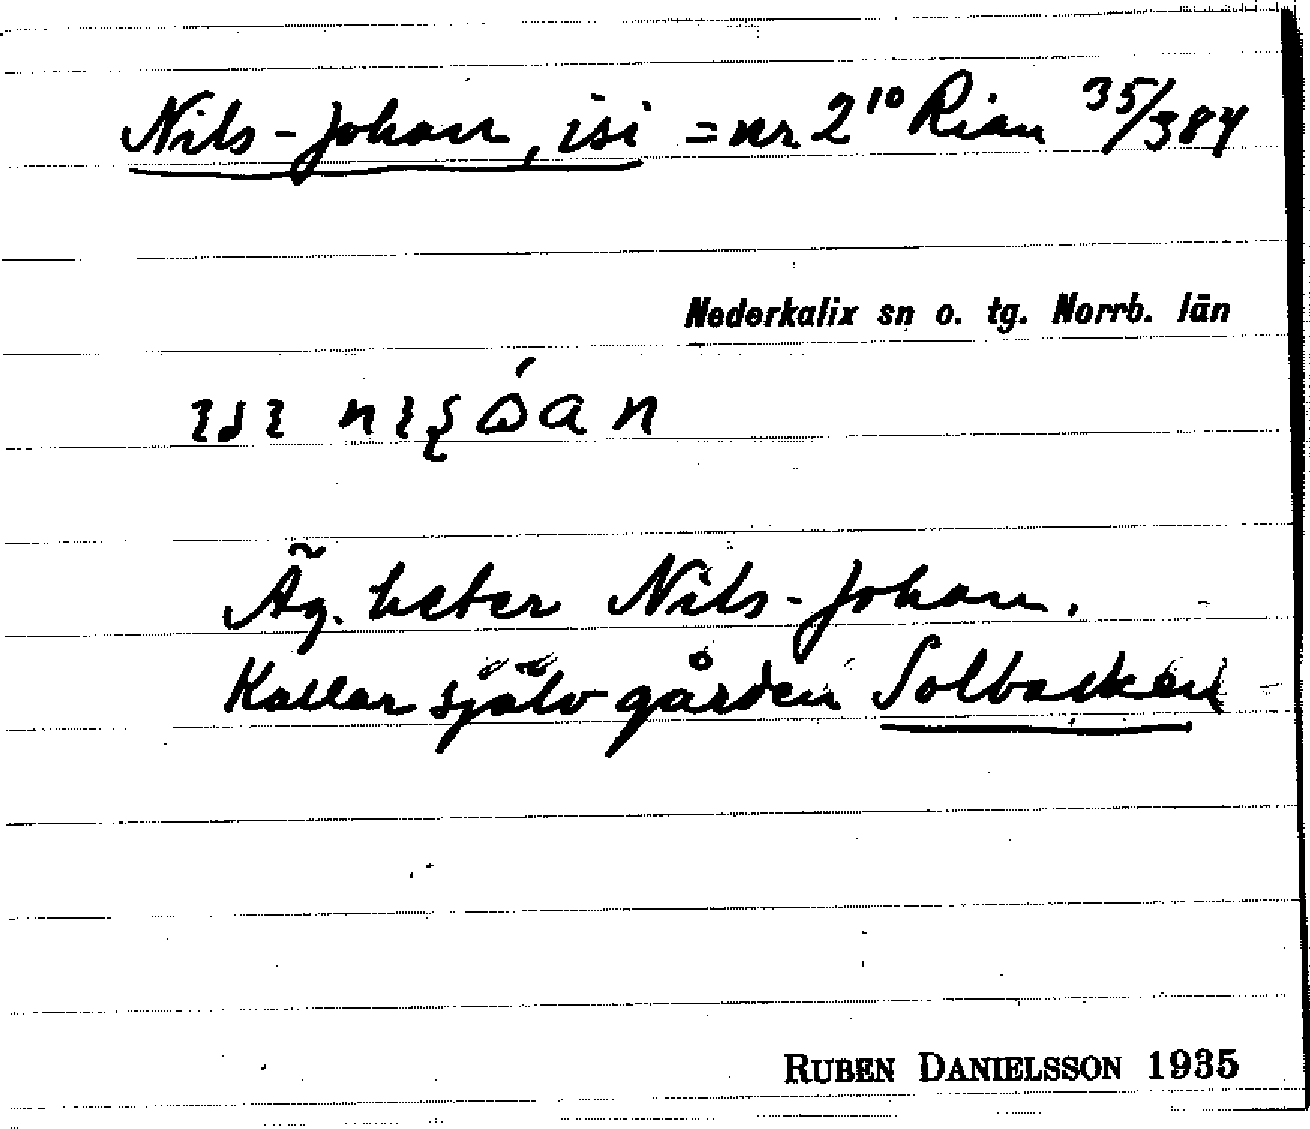 Nils-Johan, isi = nr 2¹⁰ Rian 35/384
Nederkalix sn o. tg. Norrb. län
Äg. heter Nils-Johan.
Kallar själv gården Solbacken
RUBEN DANIELSSON 1935